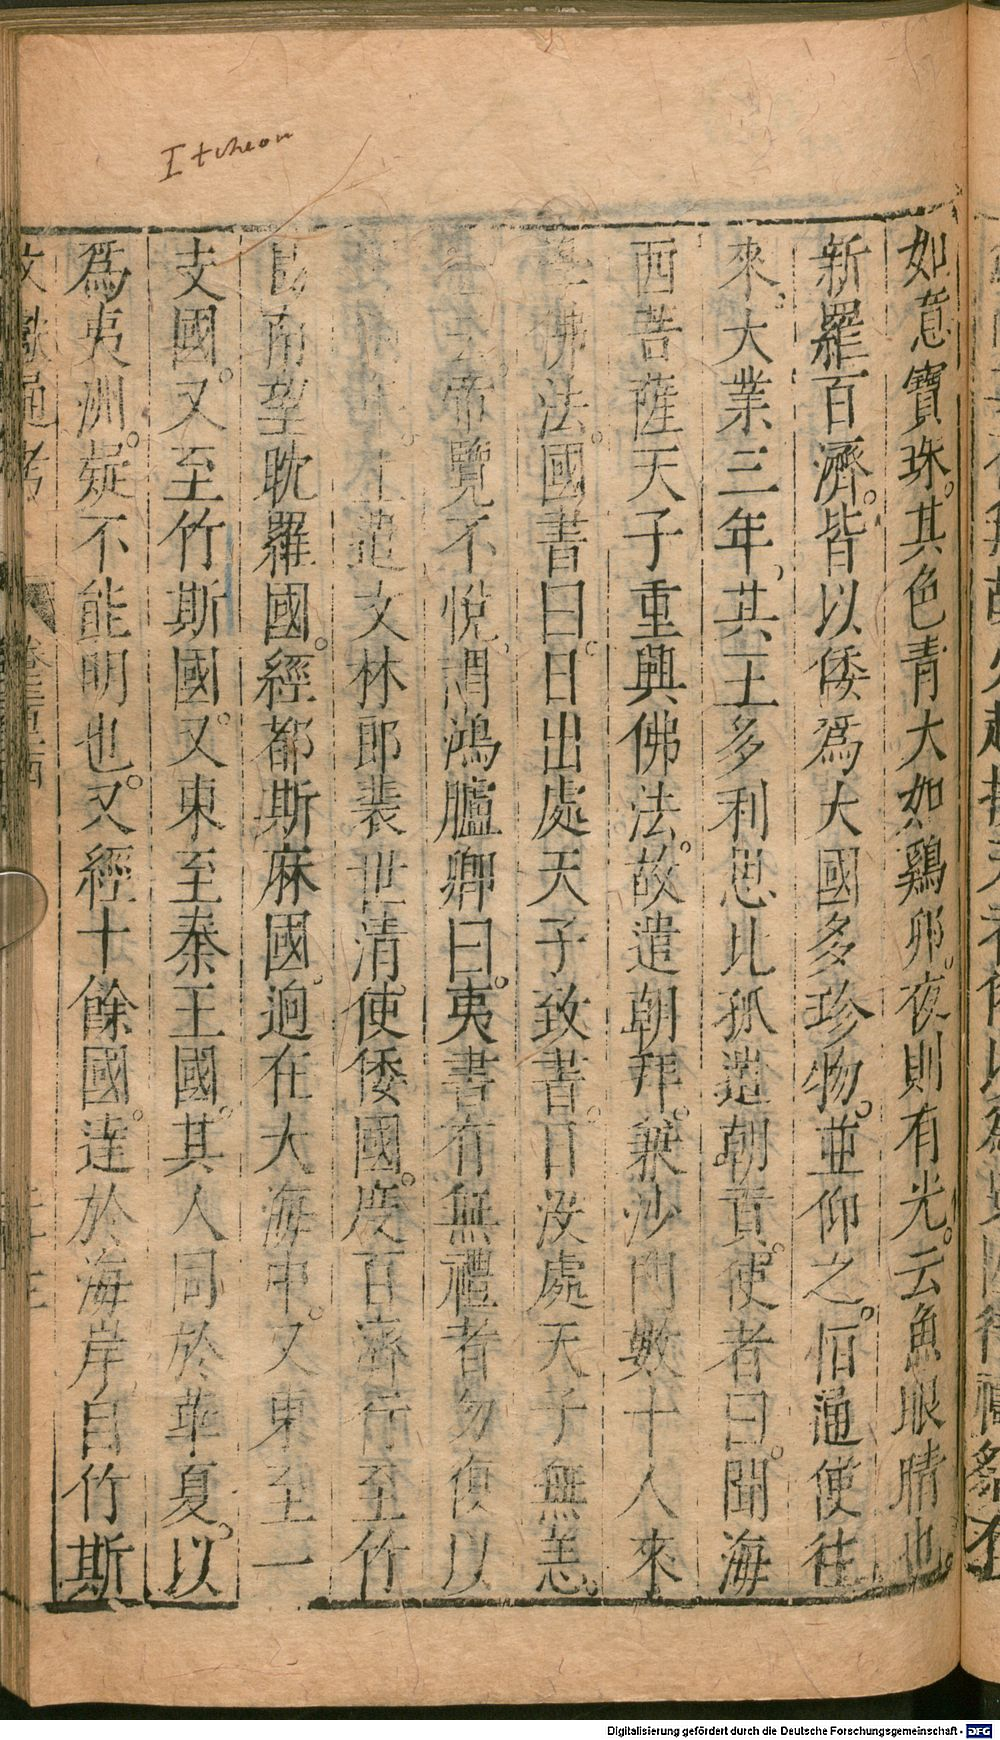 Itcheon
如意寶珠。其色青大如鷄卵。夜則有光。云魚眼睛也。
新羅百濟。皆以倭爲大國多珍物。並仰之。恒通使往
來。大業三年。其王多利思比孤遣朝貢。使者曰。聞海
西菩薩天子重興佛法。故遣朝拜。兼沙門數十人來
佛法。國書曰。日出處天子致書。日没處天子無恙。
帝覽不悅。謂鴻臚卿曰。夷書有無禮者勿復以
遣文林郎裴世清。使倭國。度百濟行至竹
南望耽羅國。經都斯麻國。迥在大海中。又東至一
支國。又至竹斯國。又東至秦王國。其人同於華夏。以
爲夷洲。疑不能明也。又經十餘國。達於海岸自竹斯
Digitalisierung gefördert durch die Deutsche Forschungsgemeinschaft - DFG